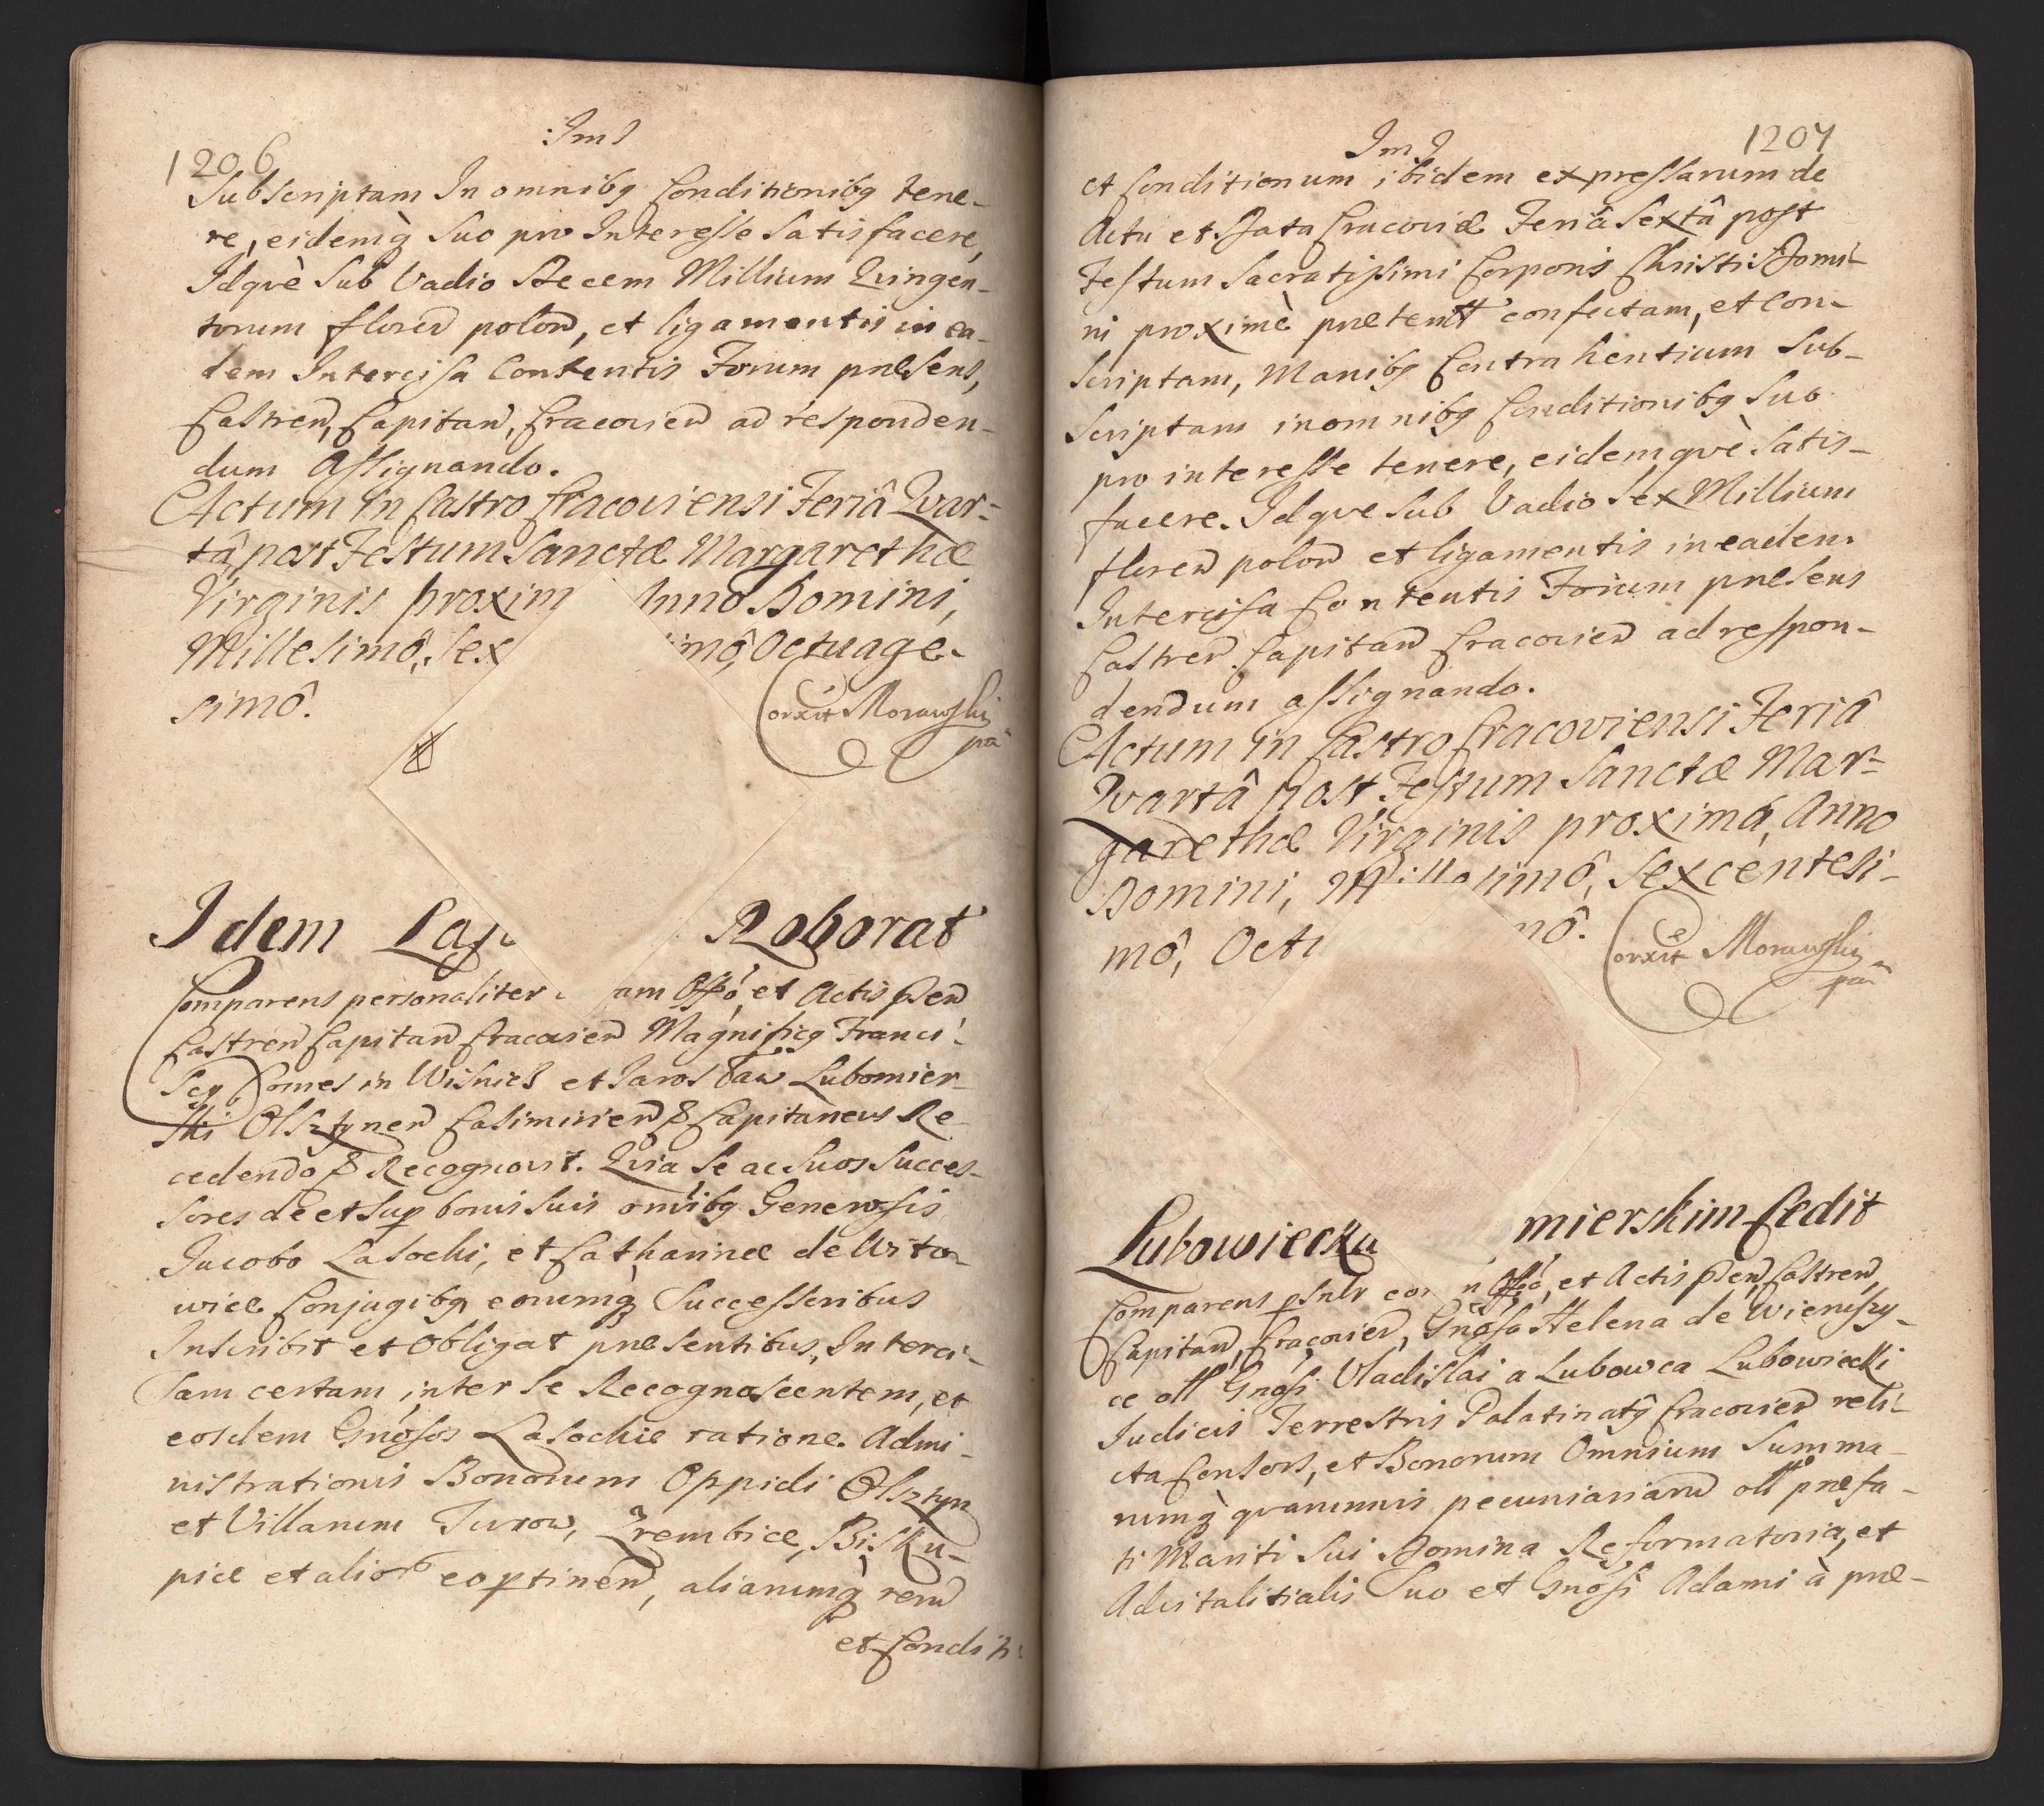 1206
Subscriptam In omnibq Conditionibq tene-
re, eidemq̀ suo pro Interesse Satisfacere,
Idqvè sub Vadio Decem Millium Qvingen-
torum floren polon, et ligamentis in ea-
dem Intercisa Contentis Forum præsens,
Castren, Capitan, Cracovien ad responden-
dum Assignando.
Actum in Castro Cracoviensi Feriâ Qvar-
tâ, post Festum Sanctæ Margarethæ
Virginis proxim Anno Domini,
Millesimô, Sex imô, Octuage-
simô.
Corxit Morawski
Idem Roborat
Comparens personaliter am Offő, et Actis pñen
Castren Capitan Cracovien Magnificq Franci-
scq Comes in Wisnicz et Jarosław Lubomier-
ski Olsztynen Casimirien & Capitaneus Re-
cedendo & Recognovit. Qvia se ac suos succes-
sores de et sup bonis suis omibq Generosis
Jacobo Lasochi, et Catharinæ de Wito-
wice Conjugibq eorumq̀ Successoribus
Inscribit et Obligat præsentibus, Interci-
sam certam inter se Recognoscentem, et
eosdem Gnősos Lasochie ratione Admi-
nistrationis Bonorum Oppidi Olsztyn
et Villarum Turow, Zrembice, Bisku-
pice et alior eo ptinen, aliarumq̀ reru
et Conditi-
1207
et Conditionum ibidem expressarum de
Actu et Data Cracoviæ Feriâ Sextâ post
Festum Sacratissimi Corporis Christi Domi-
ni proximè præterit confectam, et Con-
scriptam, Manibq Contrahentium Sub-
scriptam in omnibq Conditionibq suo
pro interesse tenere, eidemqvè satis-
facere. Idqve sub Vadio Sex Millium
floren polon et ligamentis in eadem
Intercisa Contentis Forum præsens
Castren Capitan Cracovien ad respon-
dendum assignando.
Actum in Castro Cracoviensi Feriâ
Qvartâ post Festum Sanctæ Mar-
garethæ Virginis proximâ, Anno
Domini, Millesimô, Sexcentesi-
mô, Octu mô.
Corxit Morawski
Lubowiecka mierskim Cedit
Comparens psnlr cor Offő, et Actis pñen, Castren,
Capitan, Cracovien, Gnősa Helena de Wieruszy-
ce oll Gnősi Vladislai a Lubowca Lubowiecki
Judicis Terrestris Palatinatq Cracovien reli-
cta Consors, et Bonorum Omnium Summa-
rumq̀ qvarumvis pecuniariaru oll præfa-
ti Mariti sui Domina Reformatoria, et
Advitalitialis Suo et Gnősi Adami à præ-